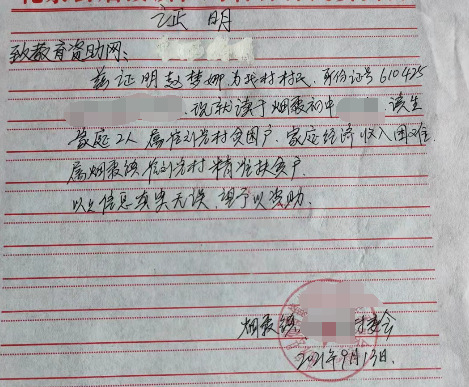 证明
致教育资助网:
兹证明赵梦娜,为我村村民,身份证号610425
,现就读于烟霞初中 该生
家庭2人属 村贫困户,家庭经济收入困难.
属烟霞镇 村精准扶贫户.
以上信息真实无误,望予以资助.
烟霞镇 村委会
2021年9月13日.